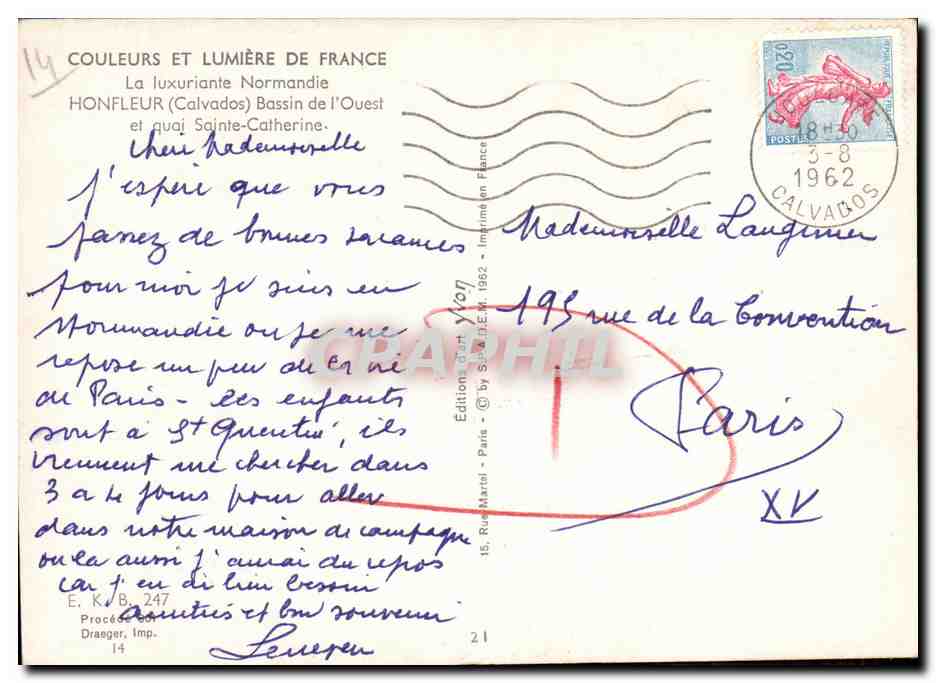 14
COULEURS ET LUMIÈRE DE FRANCE
La luxuriante Normandie
HONFLEUR (Calvados) Bassin de l'Ouest
et quai Sainte-Catherine.
Chère Mademoiselle
J'espère que vous
passez de bonnes vacances
pour moi je suis en
Normandie ou je me
repose un peu de la vie
de Paris - Les enfants
sont à St Quentin, ils
viennent me chercher dans
3 a 4 jours pour aller
dans notre maison de campagne
ou la aussi j'aurai du repos
car j'en ai bien besoin
amitiés et bon souvenir
E. K. B. 247
Procédé
Draeger, Imp.
14
Editions d'art Yvon
15, Rue Martel - Paris - © by S.P.A.D.E.M. 1962 - Imprimé en France
21
0,20
POSTES
18H30
3-8
1962
CALVADOS
Mademoiselle
195 rue de la Convention
Paris
XV
CPAPHIL